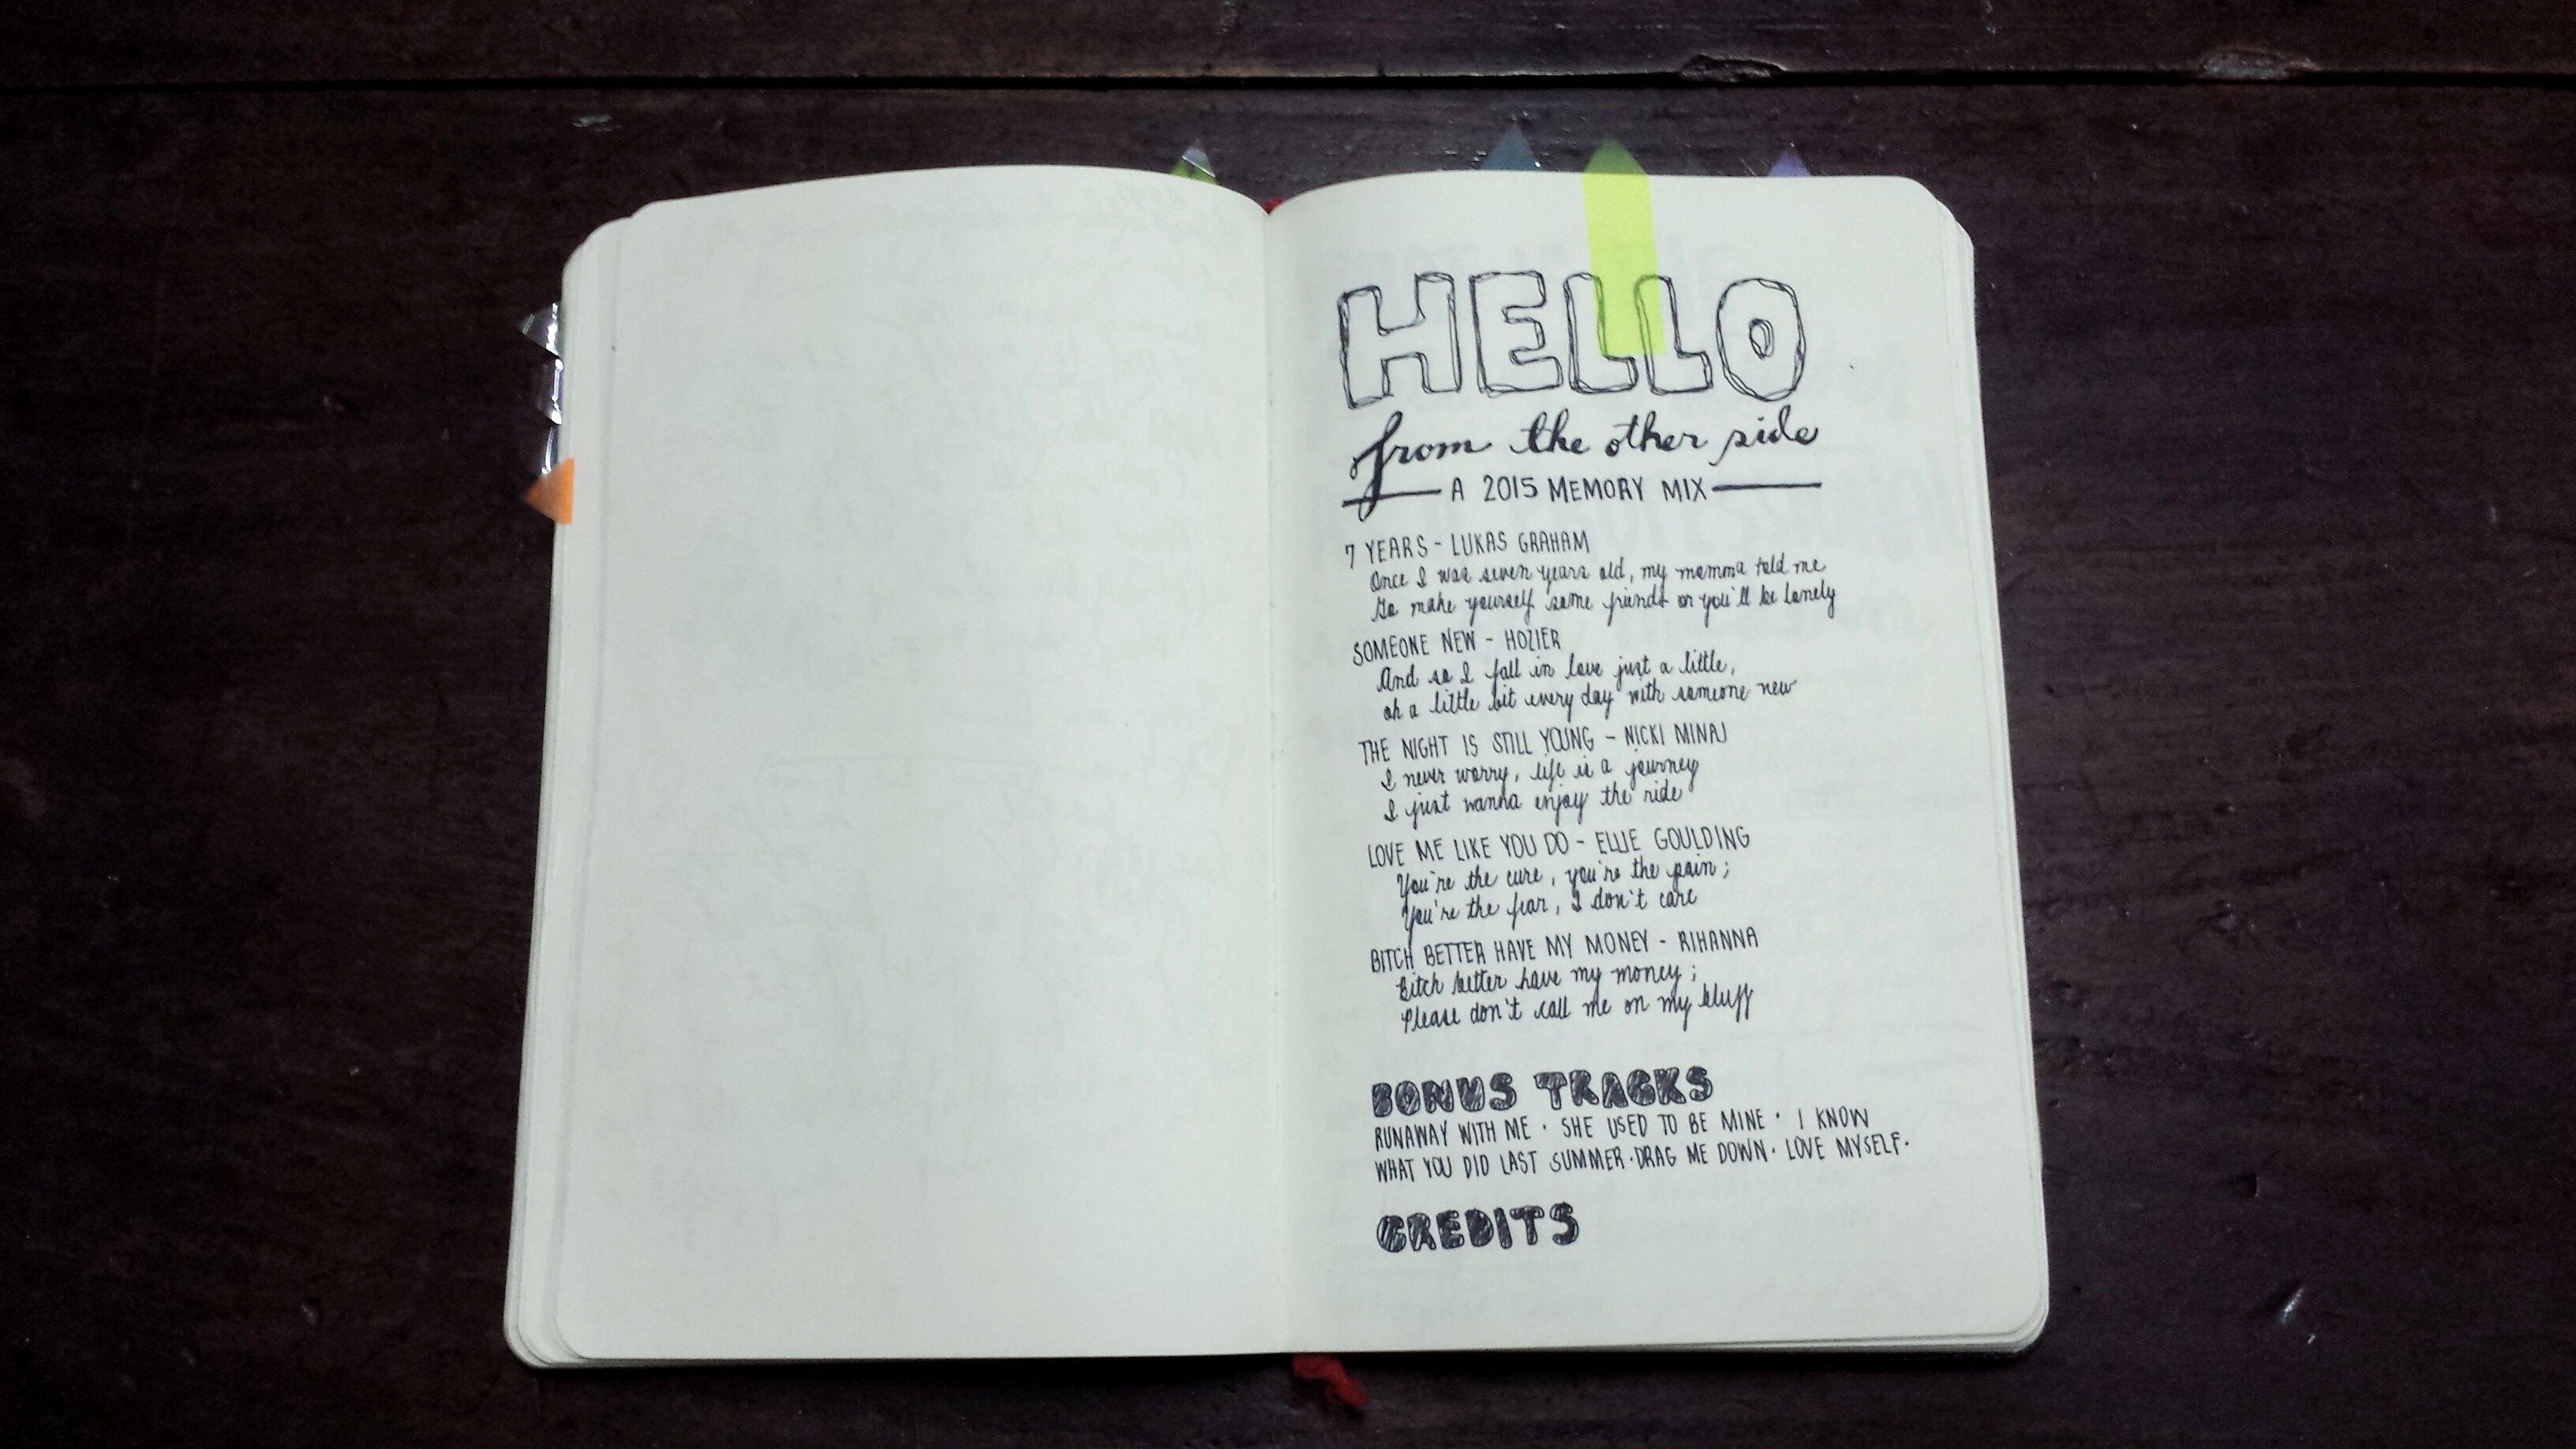 HELLO
from the other side
A 2015 MEMORY MIX
7 YEARS - LUKAS GRAHAM
Once I was seven years old, my momma told me
Go make yourself some friends or you'll be lonely
SOMEONE NEW - HOZIER
And so I fall in love just a little,
oh a little bit every day with someone new
THE NIGHT IS STILL YOUNG - NICKI MINAJ
I never worry, life is a journey
I just wanna enjoy the ride
LOVE ME LIKE YOU DO - ELLIE GOULDING
You're the cure, you're the pain;
You're the fear, I don't care
BITCH BETTER HAVE MY MONEY - RIHANNA
Bitch better have my money;
Please don't call me on my bluff
BONUS TRACKS
RUNAWAY WITH ME · SHE USED TO BE MINE · I KNOW
WHAT YOU DID LAST SUMMER · DRAG ME DOWN · LOVE MYSELF ·
CREDITS